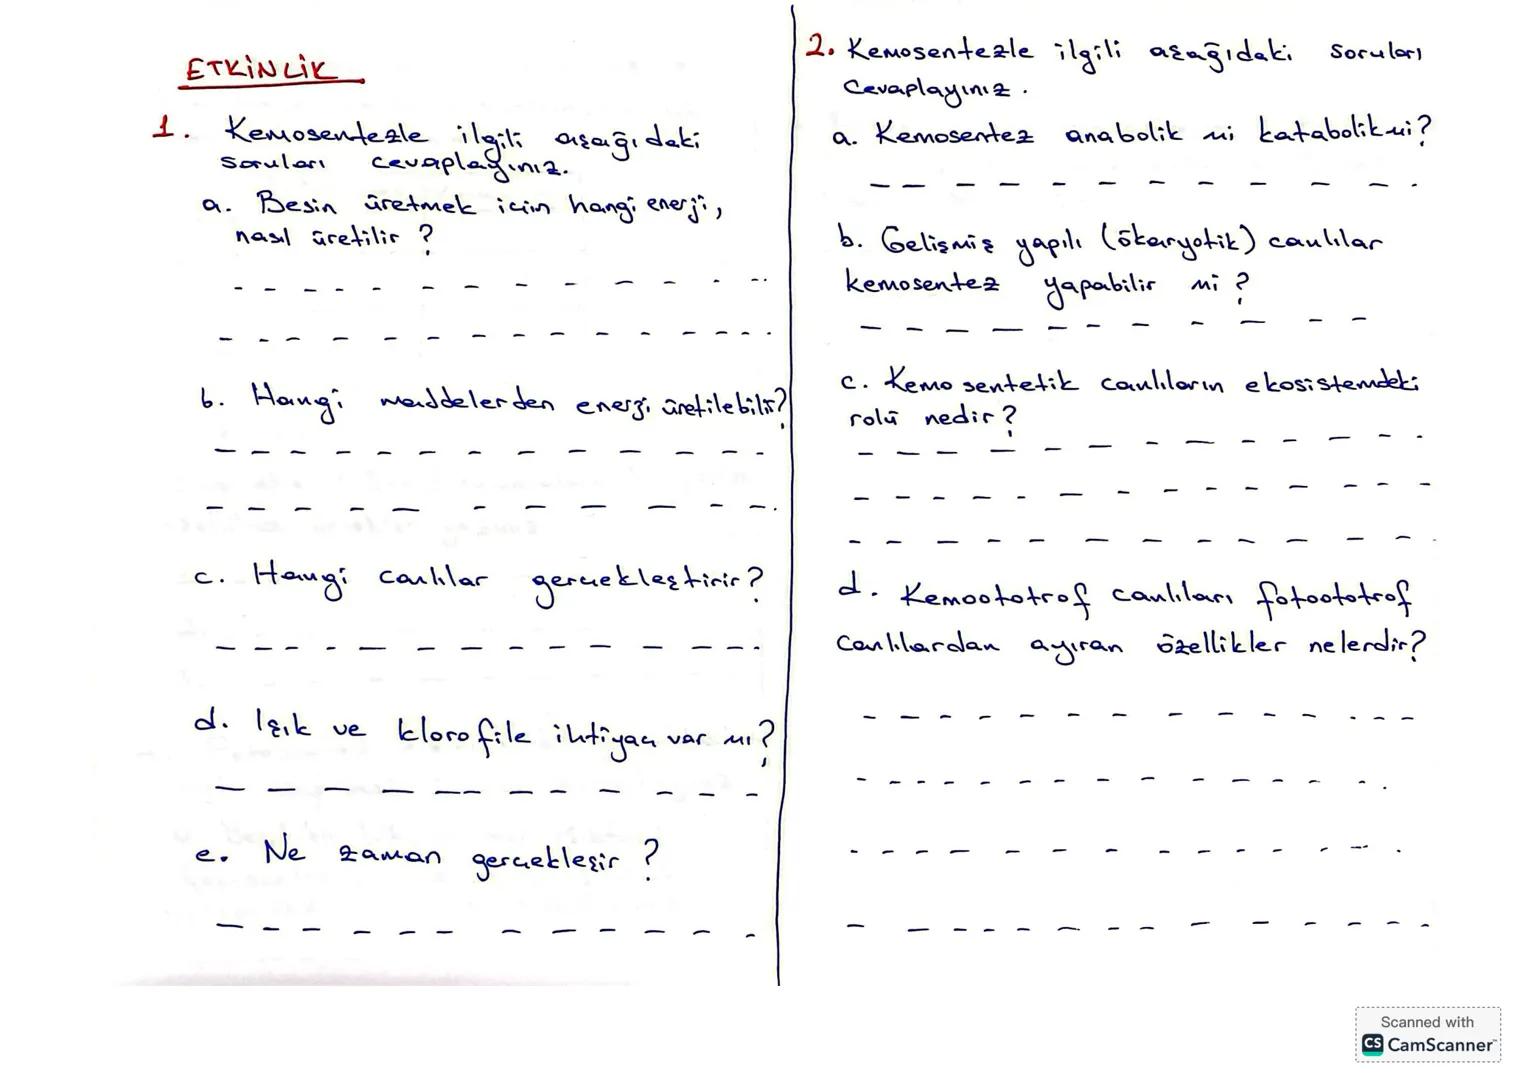 ETKİNLİK
1. Kemosentezle ilgili aşağıdaki
soruları cevaplayınız.
a. Besin üretmek için hangi enerji,
nasıl üretilir ?
b. Hangi maddelerden enerji üretilebilir?
c. Hangi canlılar gerçekleştirir?
d. Işık ve klorofile ihtiyaç var mı?
e. Ne zaman gerçekleşir ?
2. Kemosentezle ilgili aşağıdaki soruları
cevaplayınız.
a. Kemosentez anabolik mi katabolik mi?
b. Gelişmiş yapılı (ökaryotik) canlılar
kemosentez yapabilir mi ?
c. Kemosentetik canlıların ekosistemdeki
rolü nedir ?
d. Kemoototrof canlıları fotoototrof
canlılardan ayıran özellikler nelerdir?
Scanned with
CS CamScanner